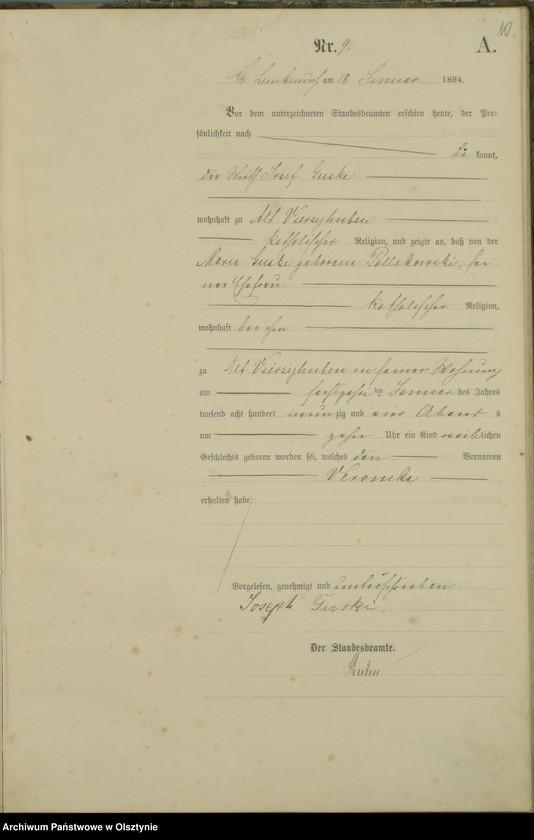 10
Nr. 9. A.
am 18 Januar 1894.
Vor dem unterzeichneten Standesbeamten erschien heute, der Per-
sönlichkeit nach
be kannt,
der Wirth Josef Guske
wohnhaft zu Alt Vierzighuben
katholischer Religion, und zeigte an, daß von der
Maria Guske geborene Pollakowski, sei-
ner Ehefrau
katholischer Religion,
wohnhaft bei ihm
zu Alt Vierzighuben in seiner Wohnung
am sechszehn ten Januar des Jahres
tausend acht hundert neunzig und vier Abend s
um zehn Uhr ein Kind weiblichen
Geschlechts geboren worden sei, welches den Vornamen
Veronika
erhalten habe
Vorgelesen, genehmigt und unterschrieben.
Joseph Guski.
Der Standesbeamte.
Archiwum Państwowe w Olsztynie